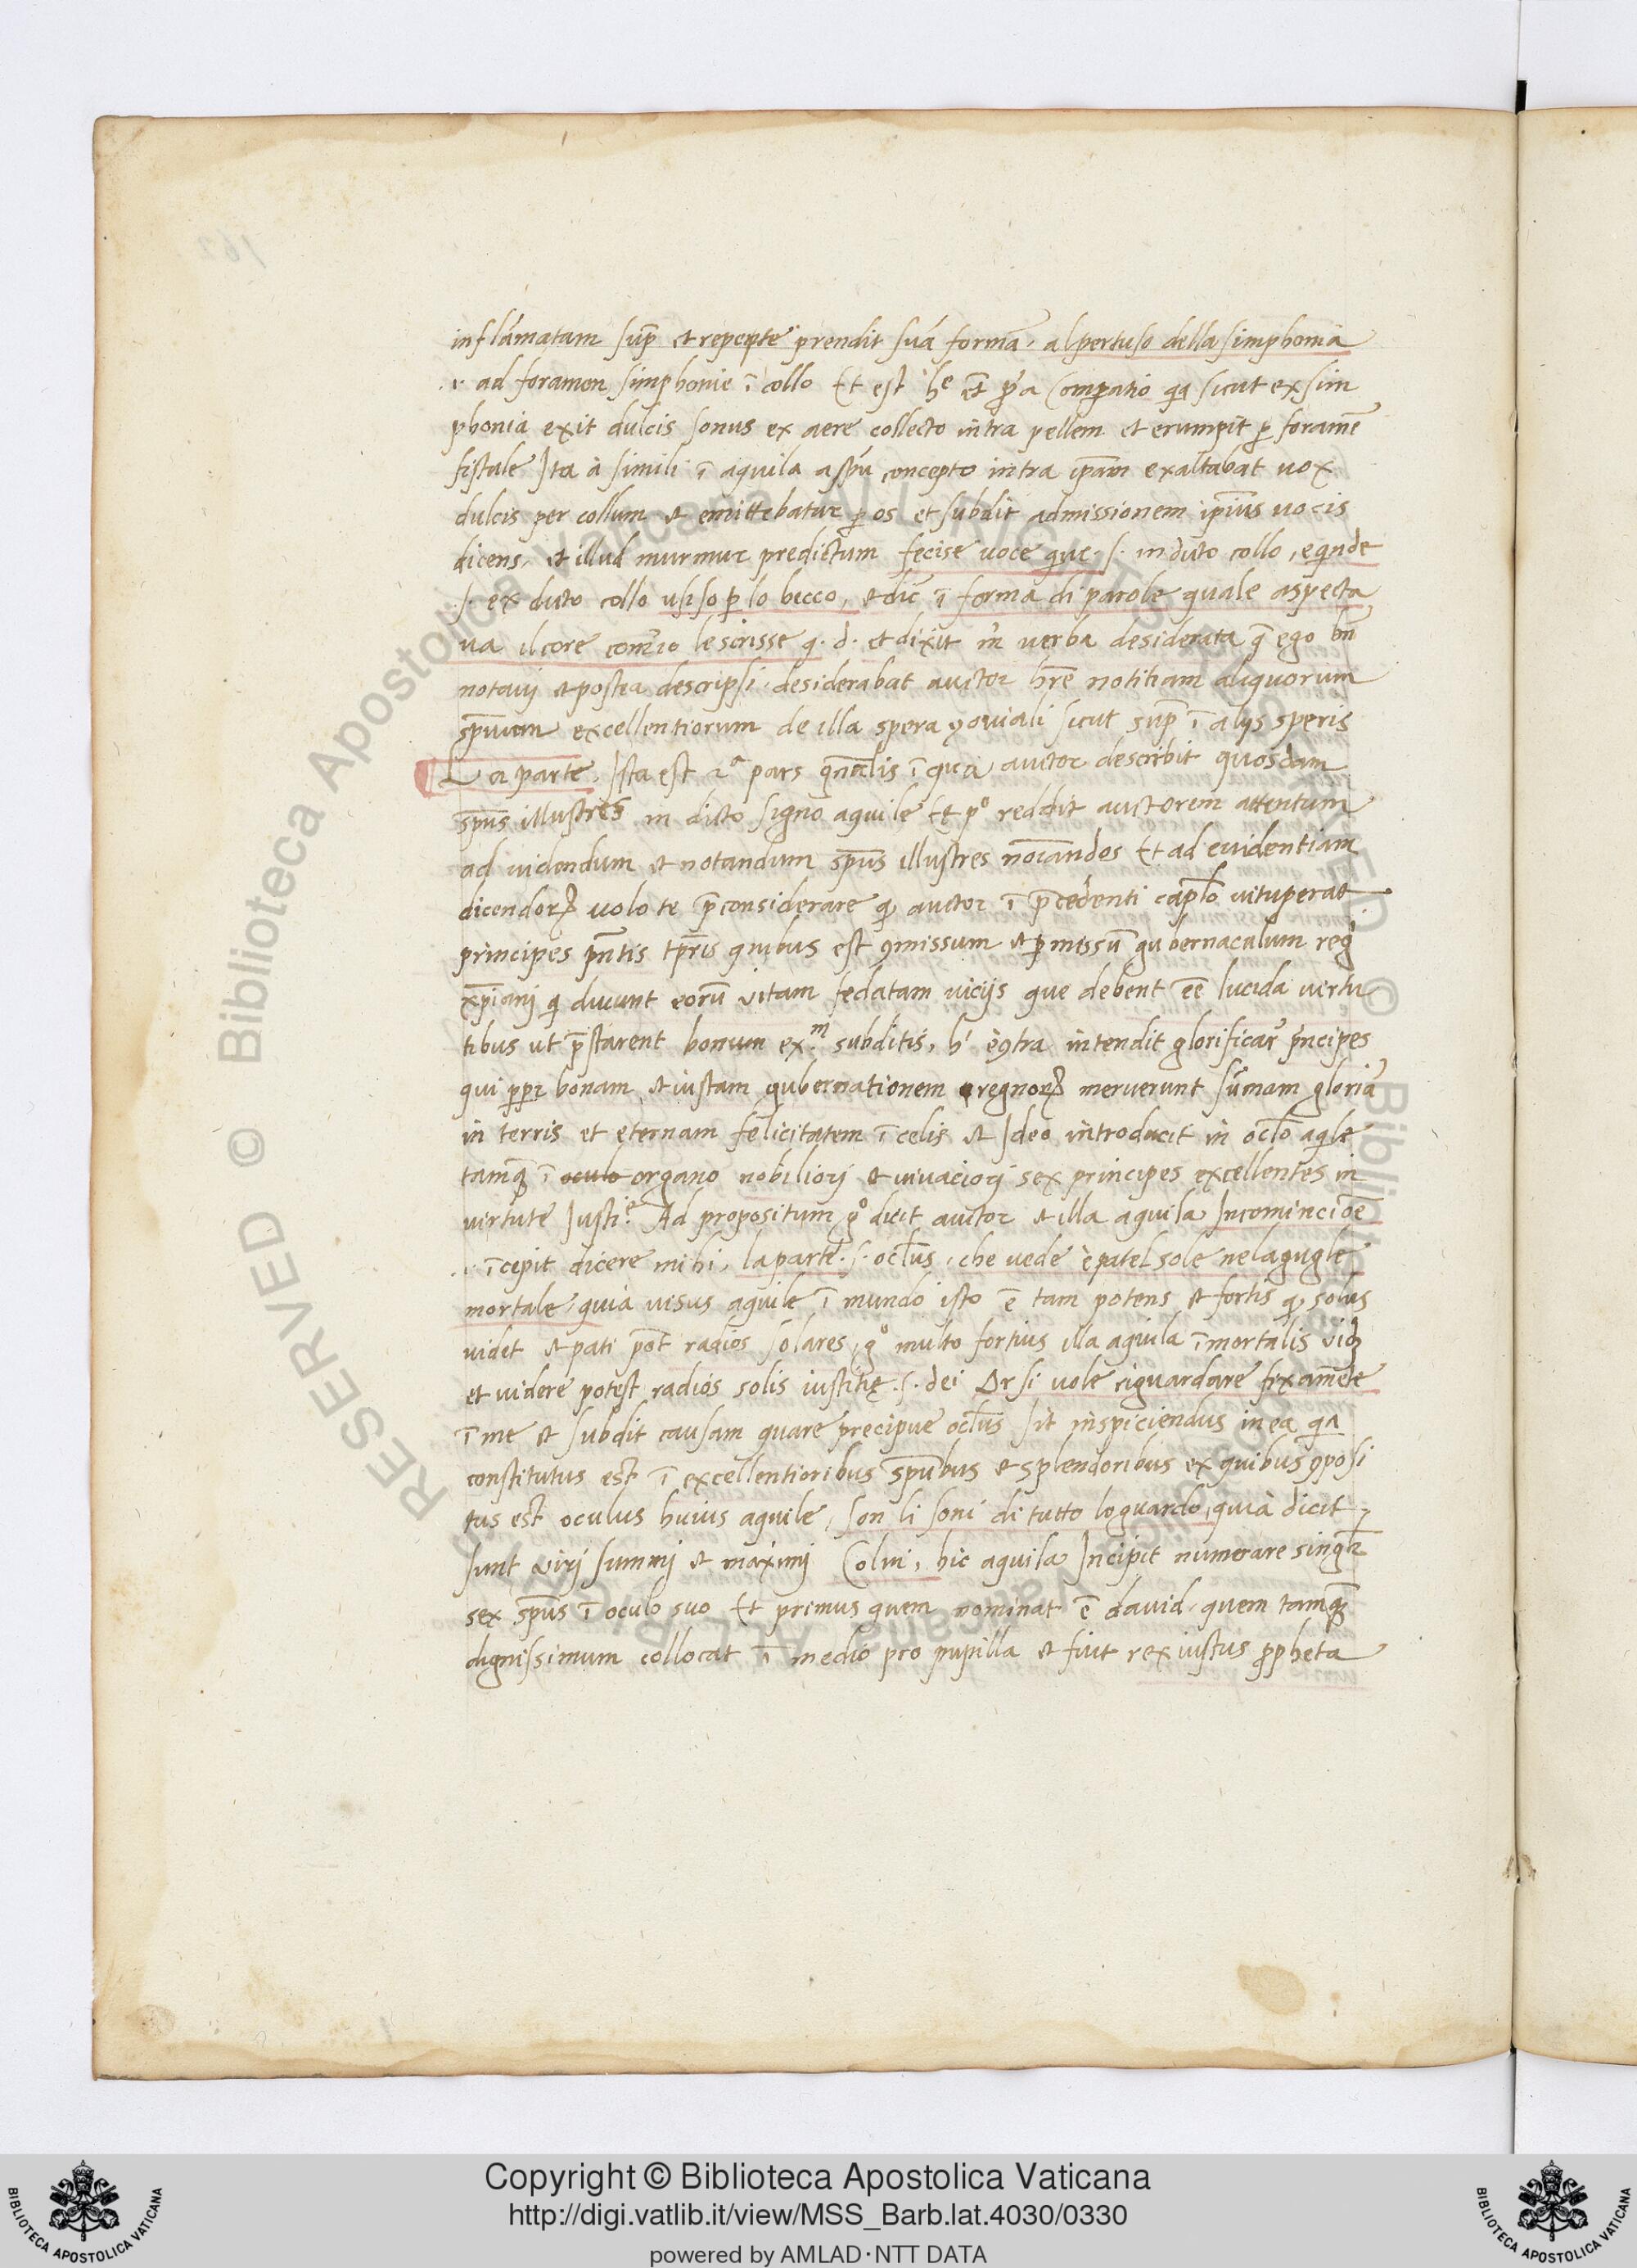 inflāmatam sup̄ et repepte prendit suā formā. al pertuso della simphonia
.i. ad foramen simphonie ī collo Et est hᵉ et̄ pᵃ comparatio qa sicut ex sim
phonia exit dulcis sonus ex aere collecto intra pellem et erumpit p̱ foramē
fistale Ita à simili ī aquila a spū concepto intra ip̄am exaltabat uox
dulcis per collum et emittebatur p̱ os et subdit admissionem ip̄ius uocis
dicens. et illud murmur predictum fecise uoce quiuc .s. in dicto collo, equinde
.s. ex dicto collo usiso p̱ lo becco, et dic̄ ī forma di parole quale aspecta
ua il core le scrisse q. d. et dixit m̄ verba desiderata q̄ ego bn̄
notauj et postea descripsi. desiderabat auctor hr̄e notitiam aliquorum
sp̄uum excellentiorum de illa spera ꝯouiali sicut sup̄ ī alijs speris
La parte. Ista est 2ᵃ pars gn̄alis ī qua auctor describit quosdam
sp̄us illustres in dicto signo aquile Et pº reddit auctorem attentum
ad uidendum et notandum sp̄us illustres noīandos Et ad euidentiam
dicendoꝝ uolo te p̄considerare q̱ auctor ī p̄cedenti cap̄lo uituperat
principes pn̄tis tp̄ris quibus est ꝯmissum et p̱missū gubernaculum reg
xp̄ianj q̱ ducunt eorū vitam fedatam vicijs que debent eē lucida virtu
tibus ut p̄starent bonum ex.ᵐ subditis, h' èꝯtra intendit glorificar̄ pncipes
qui p̱p̱ bonam et iustam gubernationem regnoꝝ meruerunt sūmam gloriā
in terris et eternam felicitatem ī celis et Ideo introducit in oc̄lo aqile
tamq̱ ī oculo organo nobiliorj et viuaciorj sex principes excellentes in
virtute Iusti.ᵉ Ad propositum gº dicit auctor et illa aquila Incominciōe
.i. īcepit dicere mihi, la parte .s. oc̄lus, che uede èpatel sole nelagugle
mortale. quia uisus aquile ī mundo isto ē tam potens et fortis q̱ solus
uidet et pati pōt radios solares, gº multo fortius illa aquila īmortalis vidꝫ
et videre potest radios solis iustitię .s. dei Or si uole riguardare fixamēte
ī me et subdit causam quare precipue oc̄lus sit inspiciendus in ea qa
constitutus est ī excellentioribus sp̄ubus et splendoribus ex quibus ꝯposi
tus est oculus huius aquile, son li soni di tutto loguardo, quia dicit
sunt virj summj et maximj Colui, hic aquila Incipit numerare sing̱
sex sp̄us ī oculo suo Et primus quem nominat ē dauid. quem tamq̱
dignissimum collocat ī medio pro pupilla et fuit rex iustus p̱pheta
Copyright © Biblioteca Apostolica Vaticana
http://digi.vatlib.it/view/MSS_Barb.lat.4030/0330
powered by AMLAD·NTT DATA
BIBLIOTECA APOSTOLICA VATICANA
BIBLIOTECA APOSTOLICA VATICANA